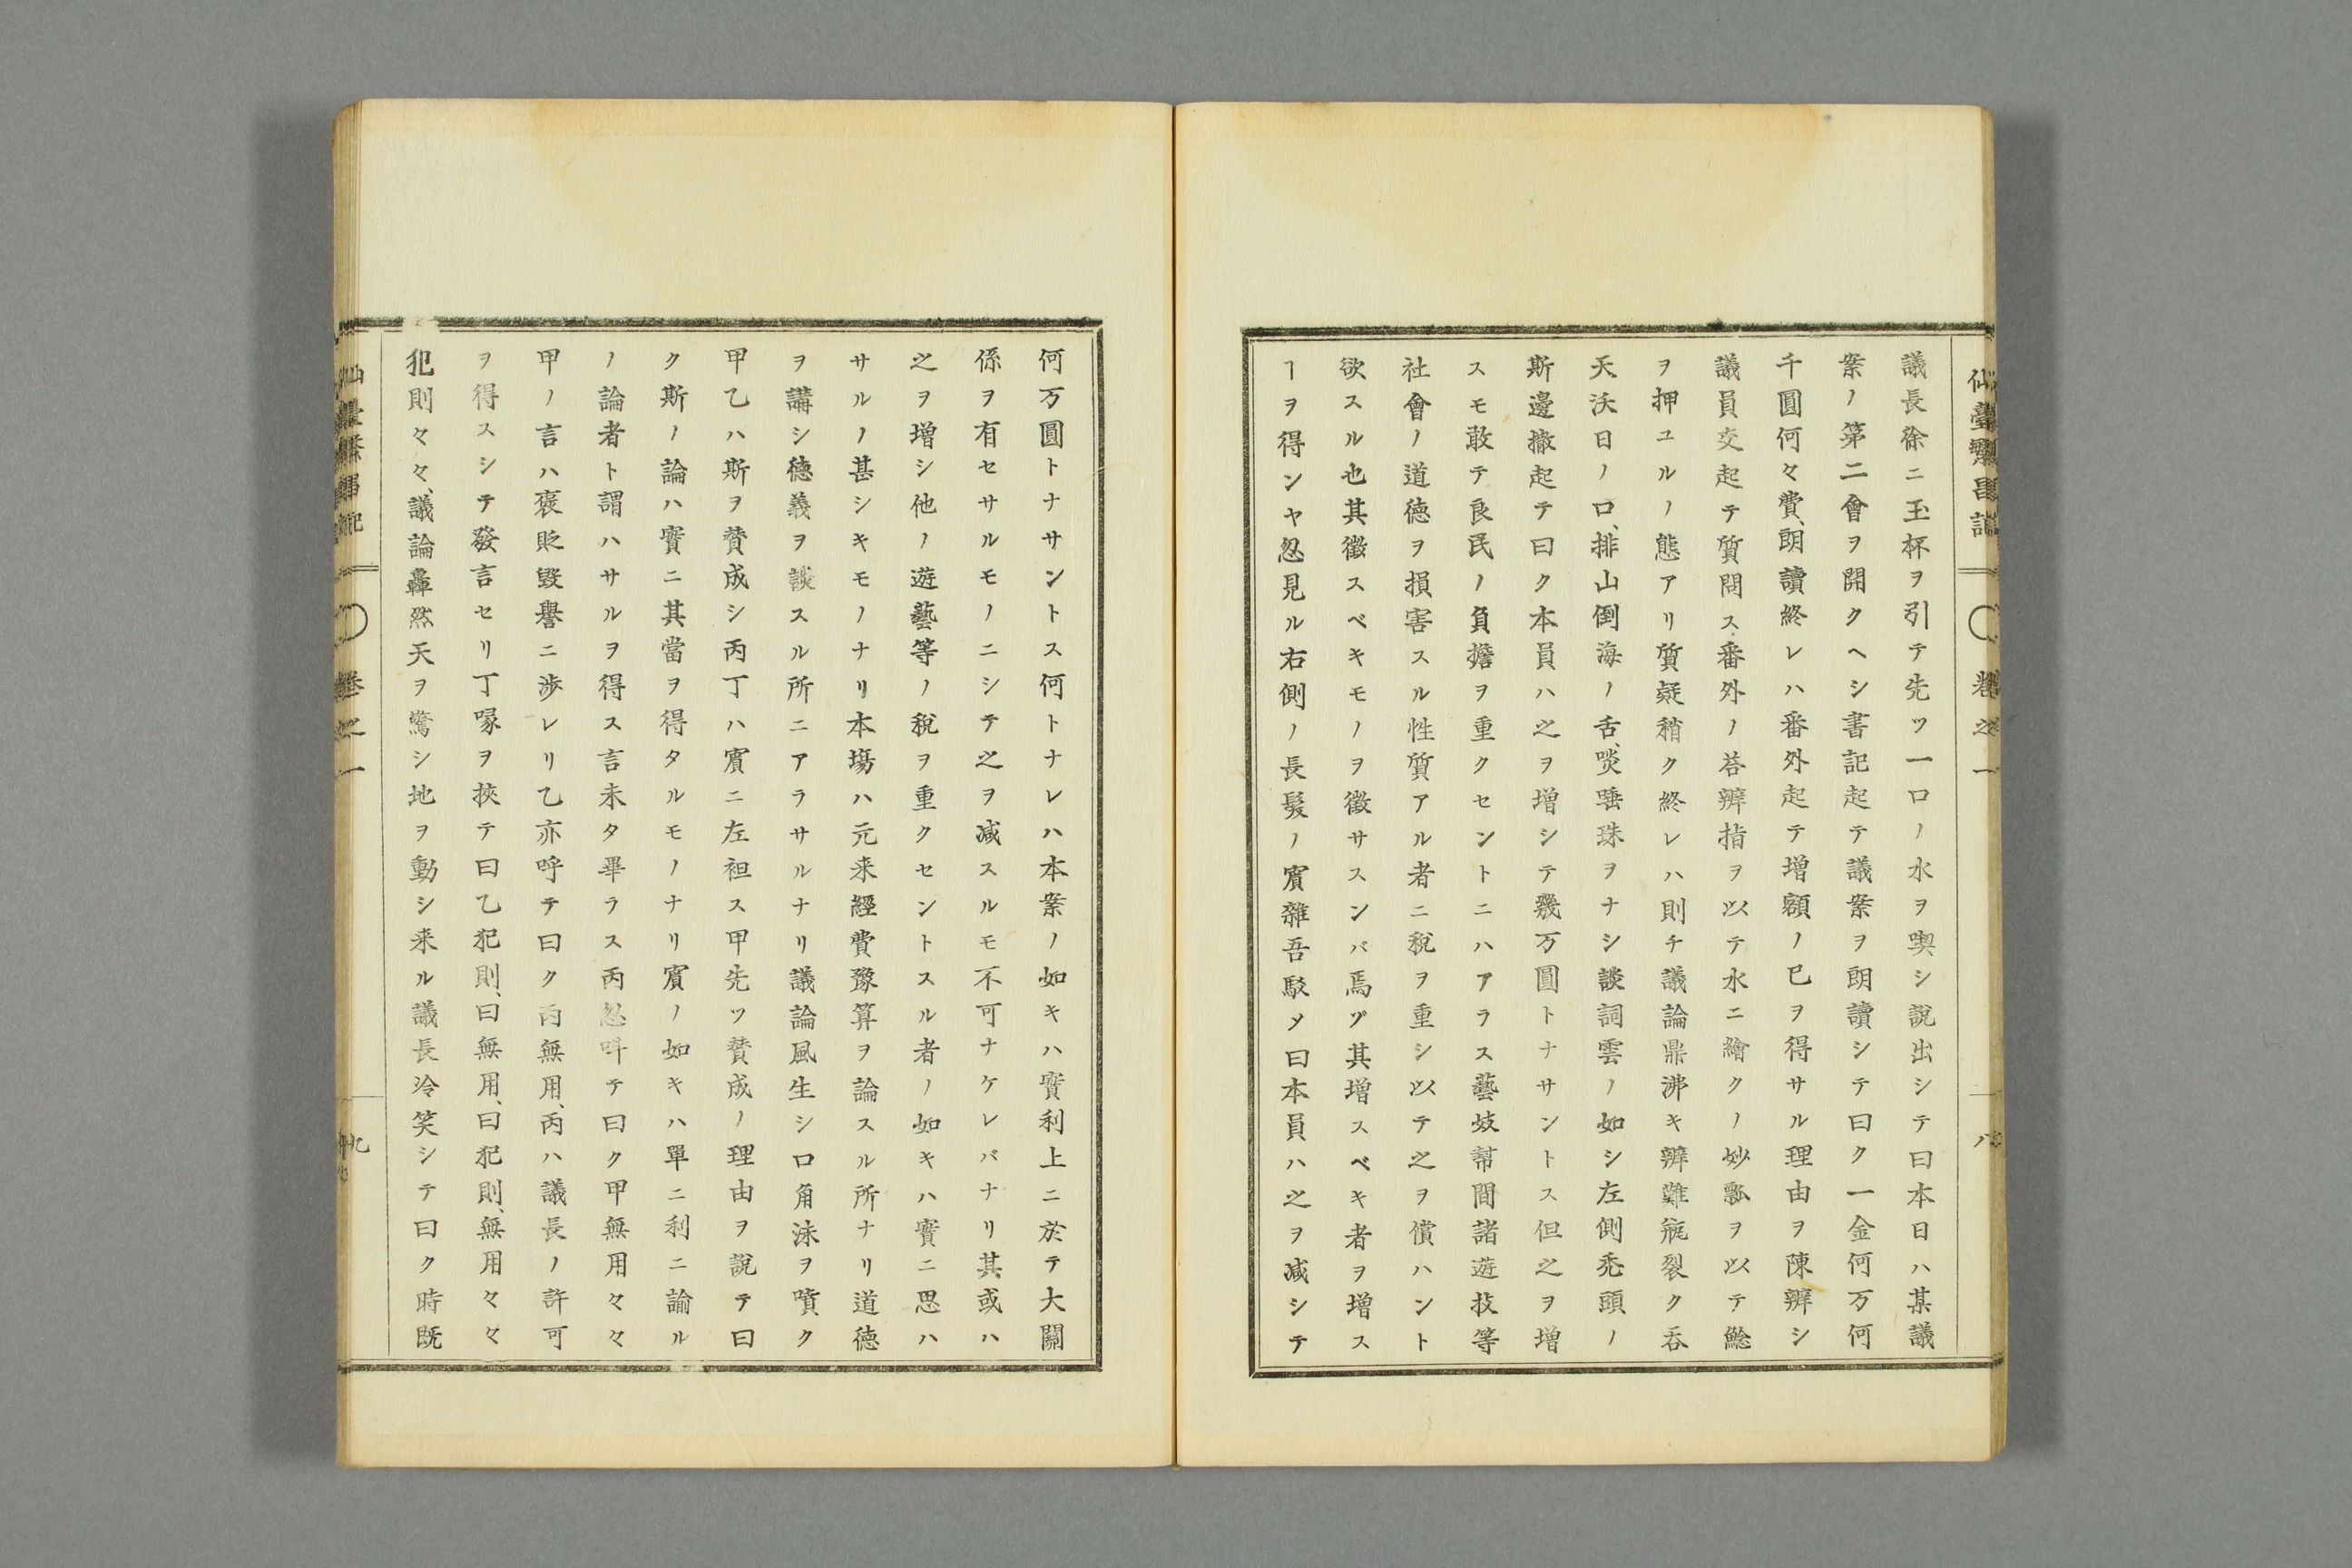 議長徐ニ玉杯ヲ引テ先ツ一口ノ水ヲ喫シ說出シテ曰本日ハ某議
案ノ第二會ヲ開クヘシ書記起テ議案ヲ朗讀シテ曰ク一金何万何
千圓何々費、朗讀終レハ番外起テ增額ノ已ヲ得サル理由ヲ陳辨シ
議員交起テ質問ス番外ノ荅辨指ヲ以テ水ニ繪クノ妙瓢ヲ以テ鯰
ヲ押ユルノ態アリ質疑稍ク終レハ則チ議論鼎沸キ辨難瓶裂ク呑
天沃日ノ口、排山倒海ノ舌、唾珠ヲナシ談詞雲ノ如シ左側禿頭ノ
斯邊撒起テ曰ク本員ハ之ヲ增シテ幾万圓トナサントス但之ヲ增
スモ敢テ良民ノ負擔ヲ重クセントニハアラス藝妓幇間諸遊技等
社會ノ道徳ヲ損害スル性質アル者ニ稅ヲ重シ以テ之ヲ償ハント
欲スル也其徵スベキモノヲ徵サスンバ焉ヅ其增スベキ者ヲ增ス
ヿヲ得ンヤ忽見ル右側ノ長髮ノ賓雜吾駁メ曰本員ハ之ヲ減シテ
何万圓トナサントス何トナレハ本案ノ如キハ實利上ニ於テ大關
係ヲ有セサルモノニシテ之ヲ減スルモ不可ナケレバナリ其或ハ
之ヲ增シ他ノ遊藝等ノ稅ヲ重クセントスル者ノ如キハ實ニ思ハ
サルノ甚シキモノナリ本塲ハ元来經費豫算ヲ論スル所ナリ道徳
ヲ講シ徳義ヲ談スル所ニアラサルナリ議論風生シ口角沫ヲ噴ク
甲乙ハ斯ヲ賛成シ丙丁ハ賓ニ左袒ス甲先ツ賛成ノ理由ヲ說テ曰
ク斯ノ論ハ實ニ其當ヲ得タルモノナリ賓ノ如キハ單ニ利ニ諭ル
ノ論者ト謂ハサルヲ得ス言未タ畢ラス丙忽呌テ曰ク甲無用々々
甲ノ言ハ褒貶毀譽ニ渉レリ乙亦呼テ曰ク丙無用、丙ハ議長ノ許可
ヲ得スシテ發言セリ丁喙ヲ挾テ曰乙犯則、曰無用、曰犯則、無用々々
犯則々々、議論轟然天ヲ驚シ地ヲ動シ来ル議長冷笑シテ曰ク時既